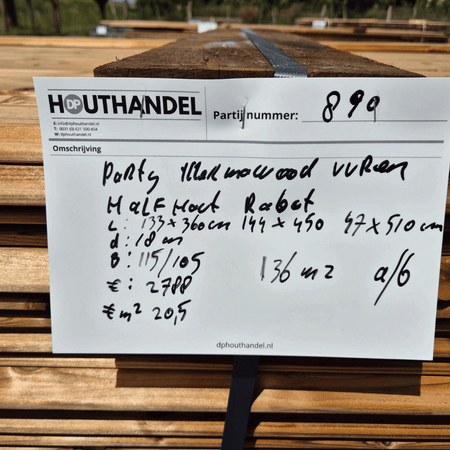 HOUTHANDEL
DP
E: info@dphouthandel.nl
T: 0031 (0) 621 500 454
W: dphouthandel.nl
Partijnummer: 899
Omschrijving
Party Thermowood VVRen
Half Hout Rabat
L: 133 x 360 cm 144 x 450 47 x 510 cm
d: 18 cm
B: 115/105 136 m2 a/b
€: 2788
€ m² 20,5
dphouthandel.nl